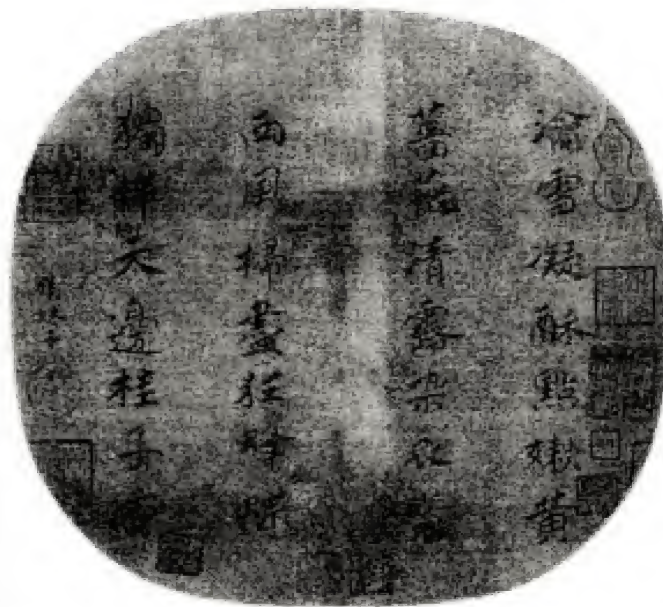 瀹雪凝酥點嫩黃
薔薇清露染衣裳
西風掃盡狂蜂蝶
獨伴天邊桂子香